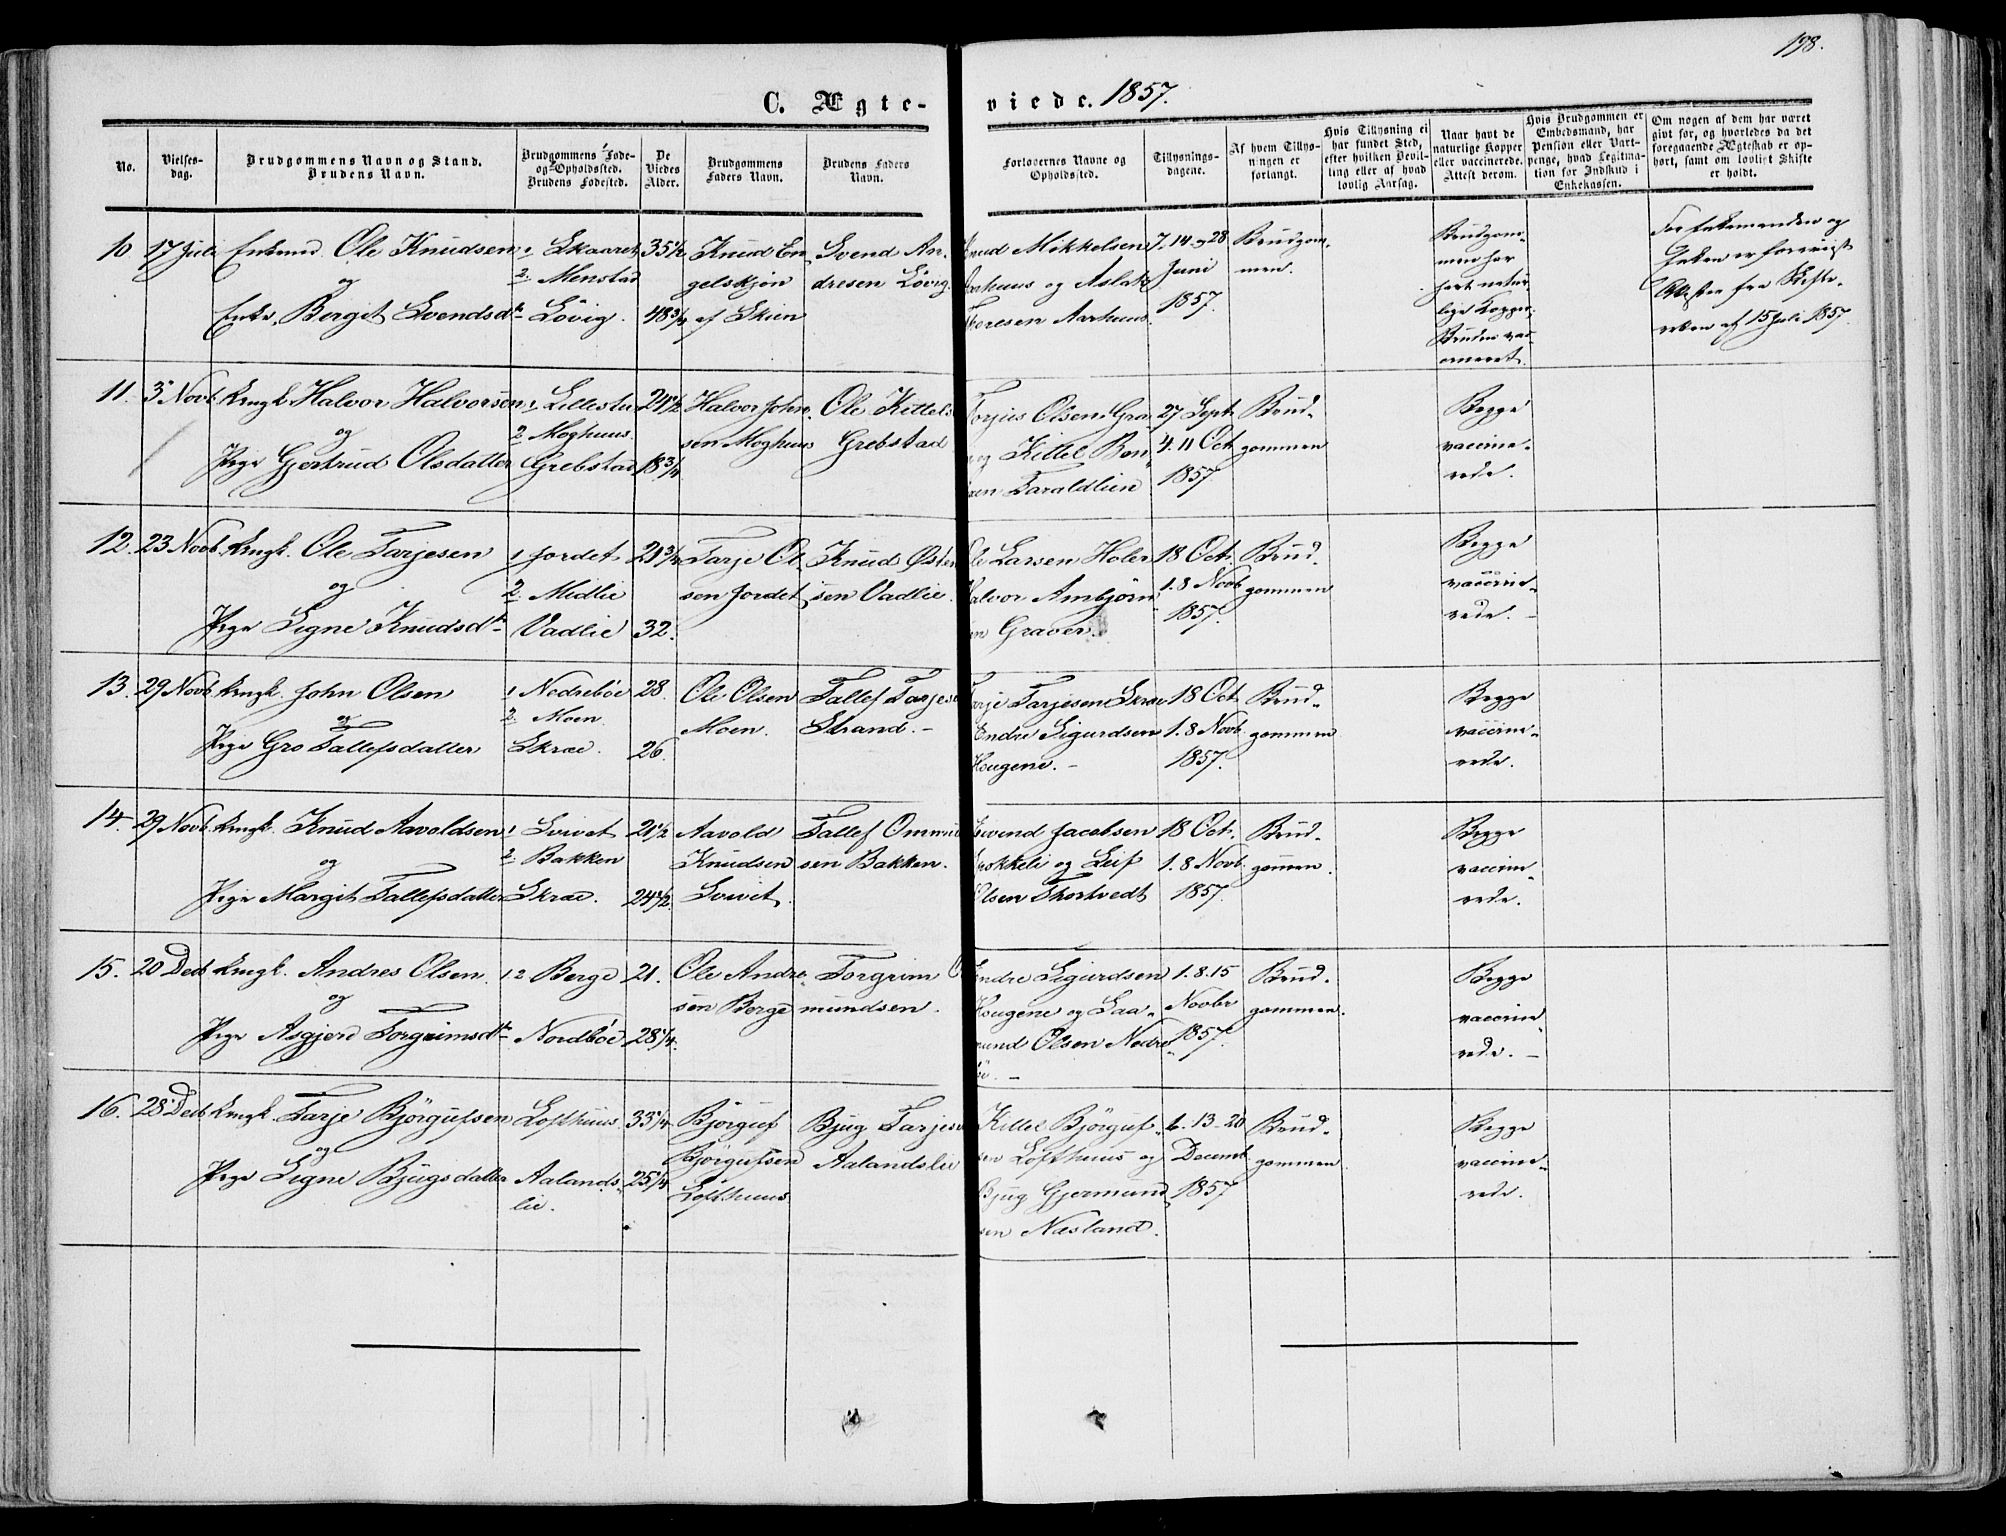 198.
C. Ægte-viede. 1857.
No.
Vielses-
dag.
Brudgommens Navn og Stand.
Brudens Navn.
Brudgommens Føde-
og Opholdssted.
Brudens Fødested.
De
Viedes
Alder.
Brudgommens
Faders Navn.
Brudens Faders
Navn.
Forlovernes Navne og
Opholdssted.
Tillysnings-
dagene.
Af hvem Tillys-
ningen er
forlangt.
Hvis Tillysning ei
har fundet Sted,
efter hvilken Bevil-
ling eller af hvad
lovlig Aarsag.
Naar havt de
naturlige Kopper
eller vaccinerede.
Attest derom.
Hvis Brudgommen er
Embedsmand, har
Pension eller Vart-
penge, hvad Legitima-
tion for Indskud i
Enkekassen.
Om nogen af dem har været
givt før, og hvorledes da det
foregaaende Ægteskab er op-
hørt, samt om lovligt Skifte
er holdt.
10 17 Juli Enkemd. Ole Knudsen
og
Enke Bergit Svendsdt.
1 Skaaret
2. Menstad
Løvig.
35 1/2
48 3/4
Knud En
gelskjøn
af Skien
Svend An-
dresen Løvig.
Knud Mikkelsen
Aarhuus og Aslak
Toresen Aarhuus.
7-14 og 28
Juni
1857.
Brudgom-
men.
Brudgom-
men har
havt natur-
lige Kopper,
Bruden vac-
cineret.
For Enkemanden og
Enken er forevist
Attester fra Skifte-
retten af 15 Juli 1857.
11. 3 Novb. Ungk. Halvor Halvorsen
og
Pige Gjertrud Olsdatter
1 Lillestu
2 Moghuus.
Grebstad
24 1/2
18 3/4
Halvor John-
sen Moghuus
Ole Kittels
Grebstad
Torjus Olsen Gra
og Kittel Bon
sen Taraldlien
27 Sept
4. 11 Oct
1857
Brud-
gommen
Begge
vaccine-
rede.
12. 23 Novb. Ungk. Ole Tarjesen
og
Pige Signe Knudsdt.
1 Jordet
2. Midlie
Vadlie
21 3/4
32.
Tarje Ol-
sen Jordet
Knud Østen
sen Vadlie.
Ole Larsen Holer
Halvor Ambjørn
en Graver.
18 Oct.
1. 8 Novb
1857.
Brud-
gommen
Begge
vaccine-
rede. -
13. 29 Novb. Ungk. John Olsen
og
Pige Gro Tallefsdatter
1 Nedrebøe
2. Moen
Skræ.
28.
26.
Ole Olsen
Moen.
Tallef Tarjese
Strand. -
Tarje Tarjesen Skræ
Endre Sigurdsen
Hougene. -
18 Oct
1. 8 Novb.
1857.
Brud-
gommen
Begge
vaccine-
rede.
14. 29 Novb. Ungk. Knud Aavoldsen
og
Pige Margit Tallefsdatter
1
2. Bakken
Skræ.
21 1/2
24 1/2.
Aavold
Knudsen
Tallef Ommun
sen Bakken.
Eivend Jacobsen
Krokkeli og Leif
Olsen Thortvedt
18 Oct.
1. 8 Novb.
1857.
Brud-
gommen.
Begge
vaccine-
rede.
15. 20 Decb Ungk. Andres Olsen.
og
Pige Asgjerd Torgrimsdt.
1 2 Berge
Nordbøe
21.
28 1/4.
Ole Andre-
sen Berge
Torgrim O
mundsen.
Endre Sigurdsen
Hougene og Laa-
mund Olsen Nedre-
øe. -
1. 8. 15
Novbr
1857.
Brud-
gommen.
Begge
vaccine-
rede. -
16. 28 Decb Ungk. Tarje Bjørgufsen
og
Pige Signe Bjugsdatter
Lofthuus.
Aalands-
lie.
33 1/4
25 1/4
Bjørguf
Bjørgufsen
Lofthuus
Bjug Tarjese
Aalandslie
Kittel Bjørguf-
sen Lofthuus og
Bjug Gjermund
sen Næsland.
6. 13-20
Decembr
1857
Brud-
gommen
Begge
vaccine-
rede.